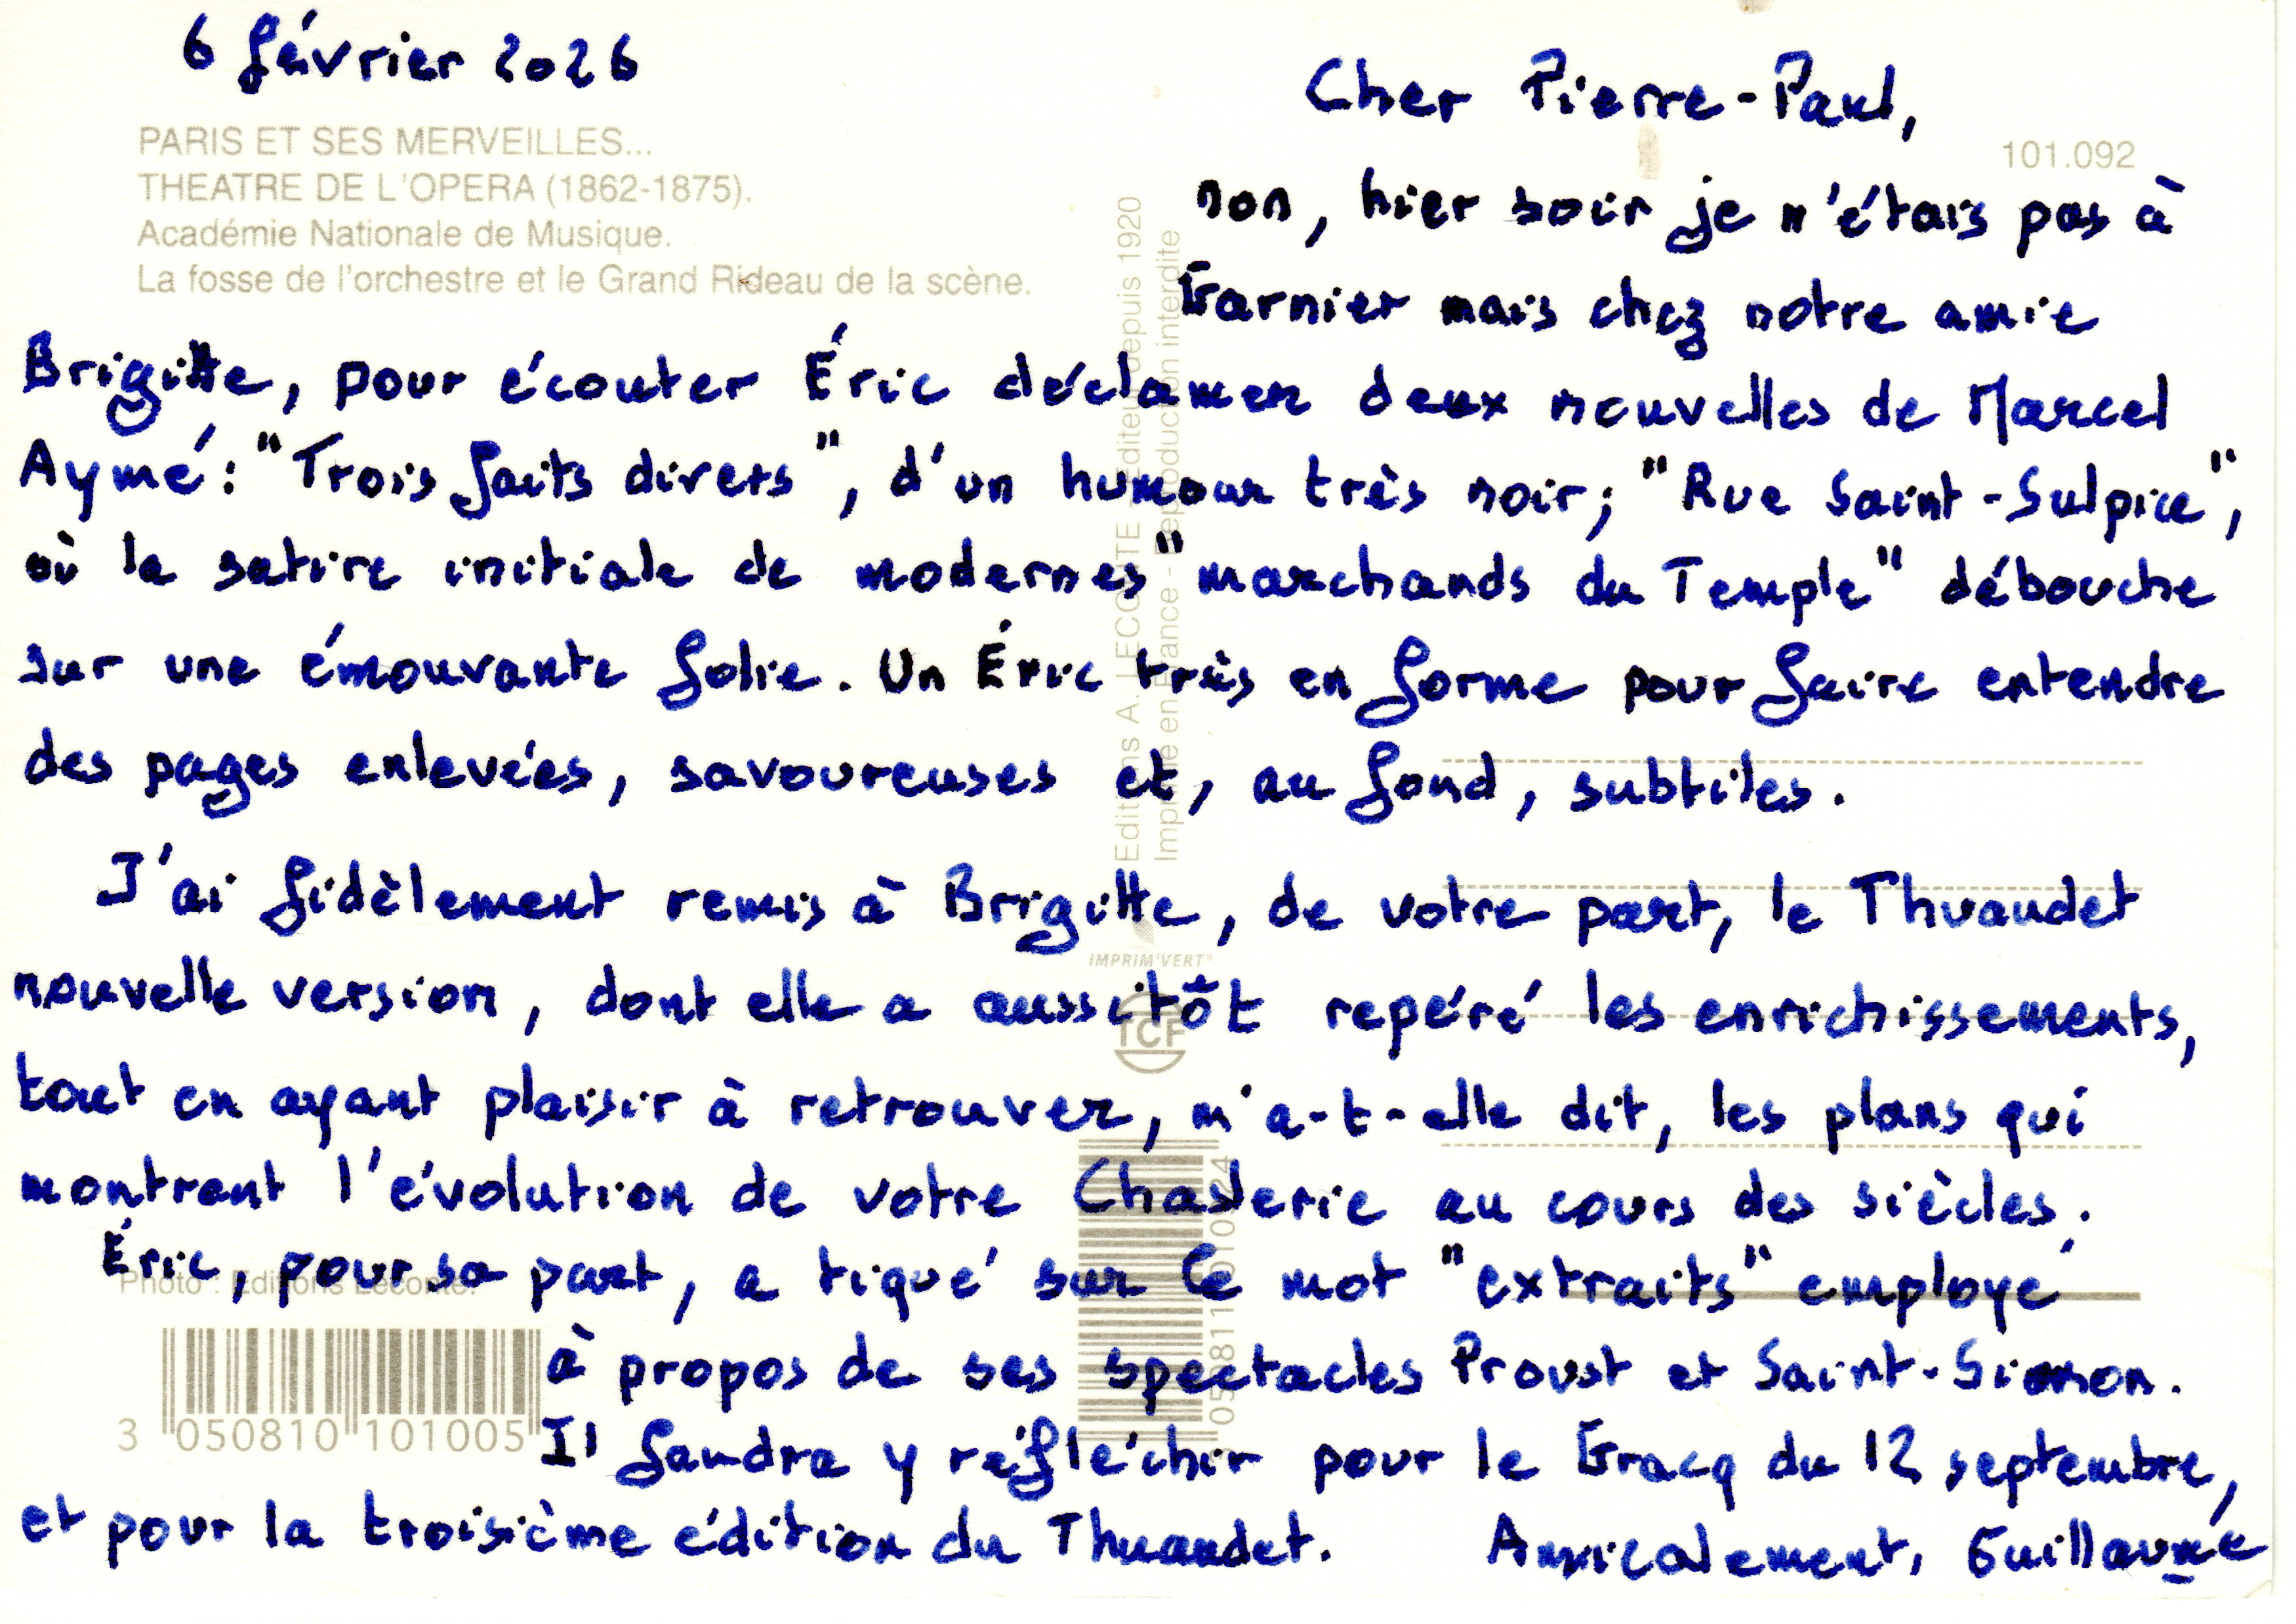 6 février 2026
PARIS ET SES MERVEILLES...
THEATRE DE L'OPERA (1862-1875).
Académie Nationale de Musique.
La fosse de l'orchestre et le Grand Rideau de la scène.
101.092
Cher Pierre-Paul,
non, hier soir je n'étais pas à
Garnier mais chez notre amie
Brigitte, pour écouter Éric déclamer deux nouvelles de Marcel
Aymé : "Trois faits divers", d'un humour très noir ; "Rue Saint-Sulpice",
où la satire initiale de modernes "marchands du Temple" débouche
sur une émouvante folie. Un Éric très en forme pour faire entendre
des pages enlevées, savoureuses et, au fond, subtiles.
J'ai fidèlement remis à Brigitte, de votre part, le Thuaudet
nouvelle version, dont elle a aussitôt repéré les enrichissements,
tout en ayant plaisir à retrouver, m'a-t-elle dit, les plans qui
montrent l'évolution de votre Chaslerie au cours des siècles.
Éric, pour sa part, a tiqué sur le mot "extraits" employé
à propos de ses spectacles Proust et Saint-Simon.
Il faudra y réfléchir pour le Gracq du 12 septembre,
et pour la troisième édition du Thuaudet. Amicalement, Guillaume
Editions A. LECONTE - Editeur depuis 1920
Imprimé en France - Reproduction interdite
IMPRIM'VERT®
TCF
Photo : Editions Leconte.
3 050810 101005